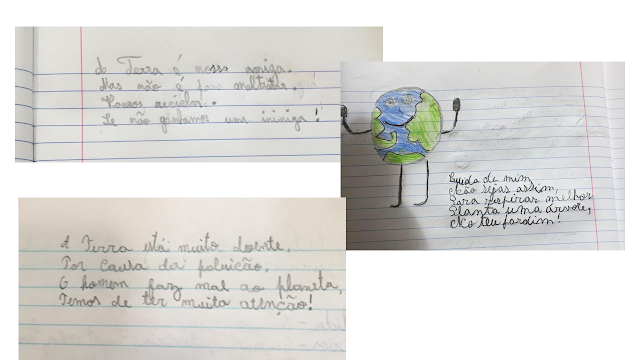 A Terra é nossa amiga.
Mas não é para maltratar.
Vamos reciclar.
Se não ganhamos uma inimiga!
Cuida de mim,
Não sejas assim,
Para respirar melhor
Planta uma árvore,
No teu jardim!
A Terra está muito doente,
Por causa da poluição,
O homem faz mal ao planeta,
Temos de ter muita atenção!